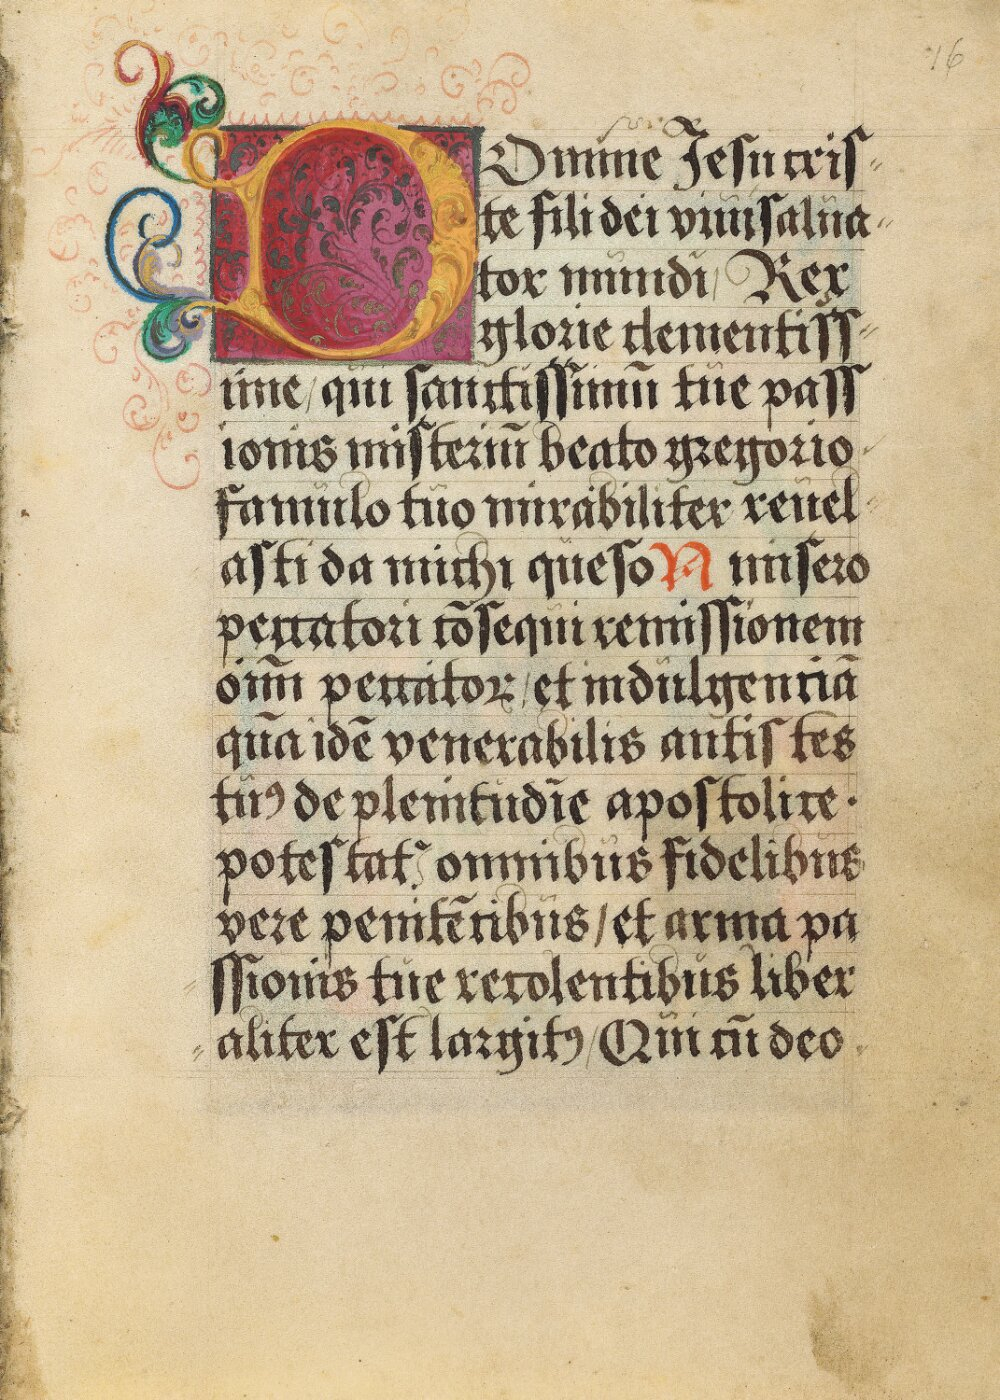 16
DOmine Jesu cris=
te fili dei viui salua=
tor mundi / Rex
glorie clementiss=
ime / qui sanctissimū tue pass
ionis misteriū beato gregorio
famulo tuo mirabiliter reuel
asti da michi queso N misero
peccatori cōsequi remissionem
oīm peccator / et indulgenciā
quā idē venerabilis antistes
tuꝰ de plenitudīe apostolice ·
potestat omnibus fidelibus
vere penitētibus / et arma pa
ssionis tue recolentibus liber
= aliter est largitꝰ / Qui cū deo